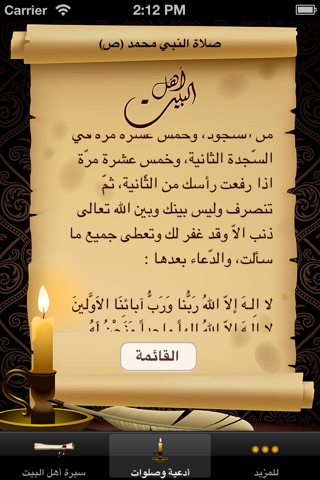 Carrier 2:12 PM
صلاة النبي محمد (ص)
أهل البيت
من السجود، وخمس عشرة مرة في
السّجدة الثانية، وخمس عشرة مرّة
اذا رفعت رأسك من الثّانية، ثمّ
تنصرف وليس بينك وبين الله تعالى
ذنب الاّ وقد غفر لك وتعطى جميع ما
سألت، والدّعاء بعدها :
لا اِلـهَ اِلاَّ اللهُ رَبُّنا وَرَبُّ آبائنَا الاَْوَّلينَ
لا اِلـهَ اِلاَّ اللهُ اِلهاً واحِداً وَنَحْنُ لَهُ
القائمة
سيرة أهل البيت
أدعية وصلوات
للمزيد